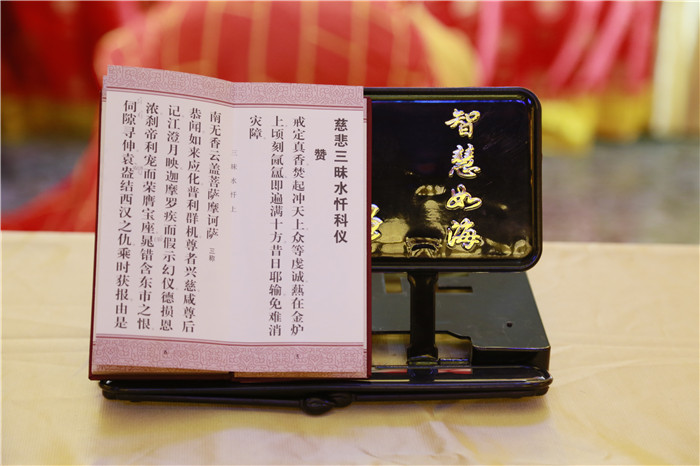 智慧如海
慈悲三昧水忏科仪
赞
戒定真香焚起冲天上众等虔诚爇在金炉
上顷刻氤氲即遍满十方昔日耶输免难消
灾障
三昧水忏上
南无香云盖菩萨摩诃萨 三称
恭闻如来应化普利群机尊者兴慈咸尊后
记江澄月映迦摩罗疾而假示幻仪德损恩
浓刹帝利宠而荣膺宝座晁错含东市之恨
伺隙寻伸袁盎结西汉之仇乘时获报由是